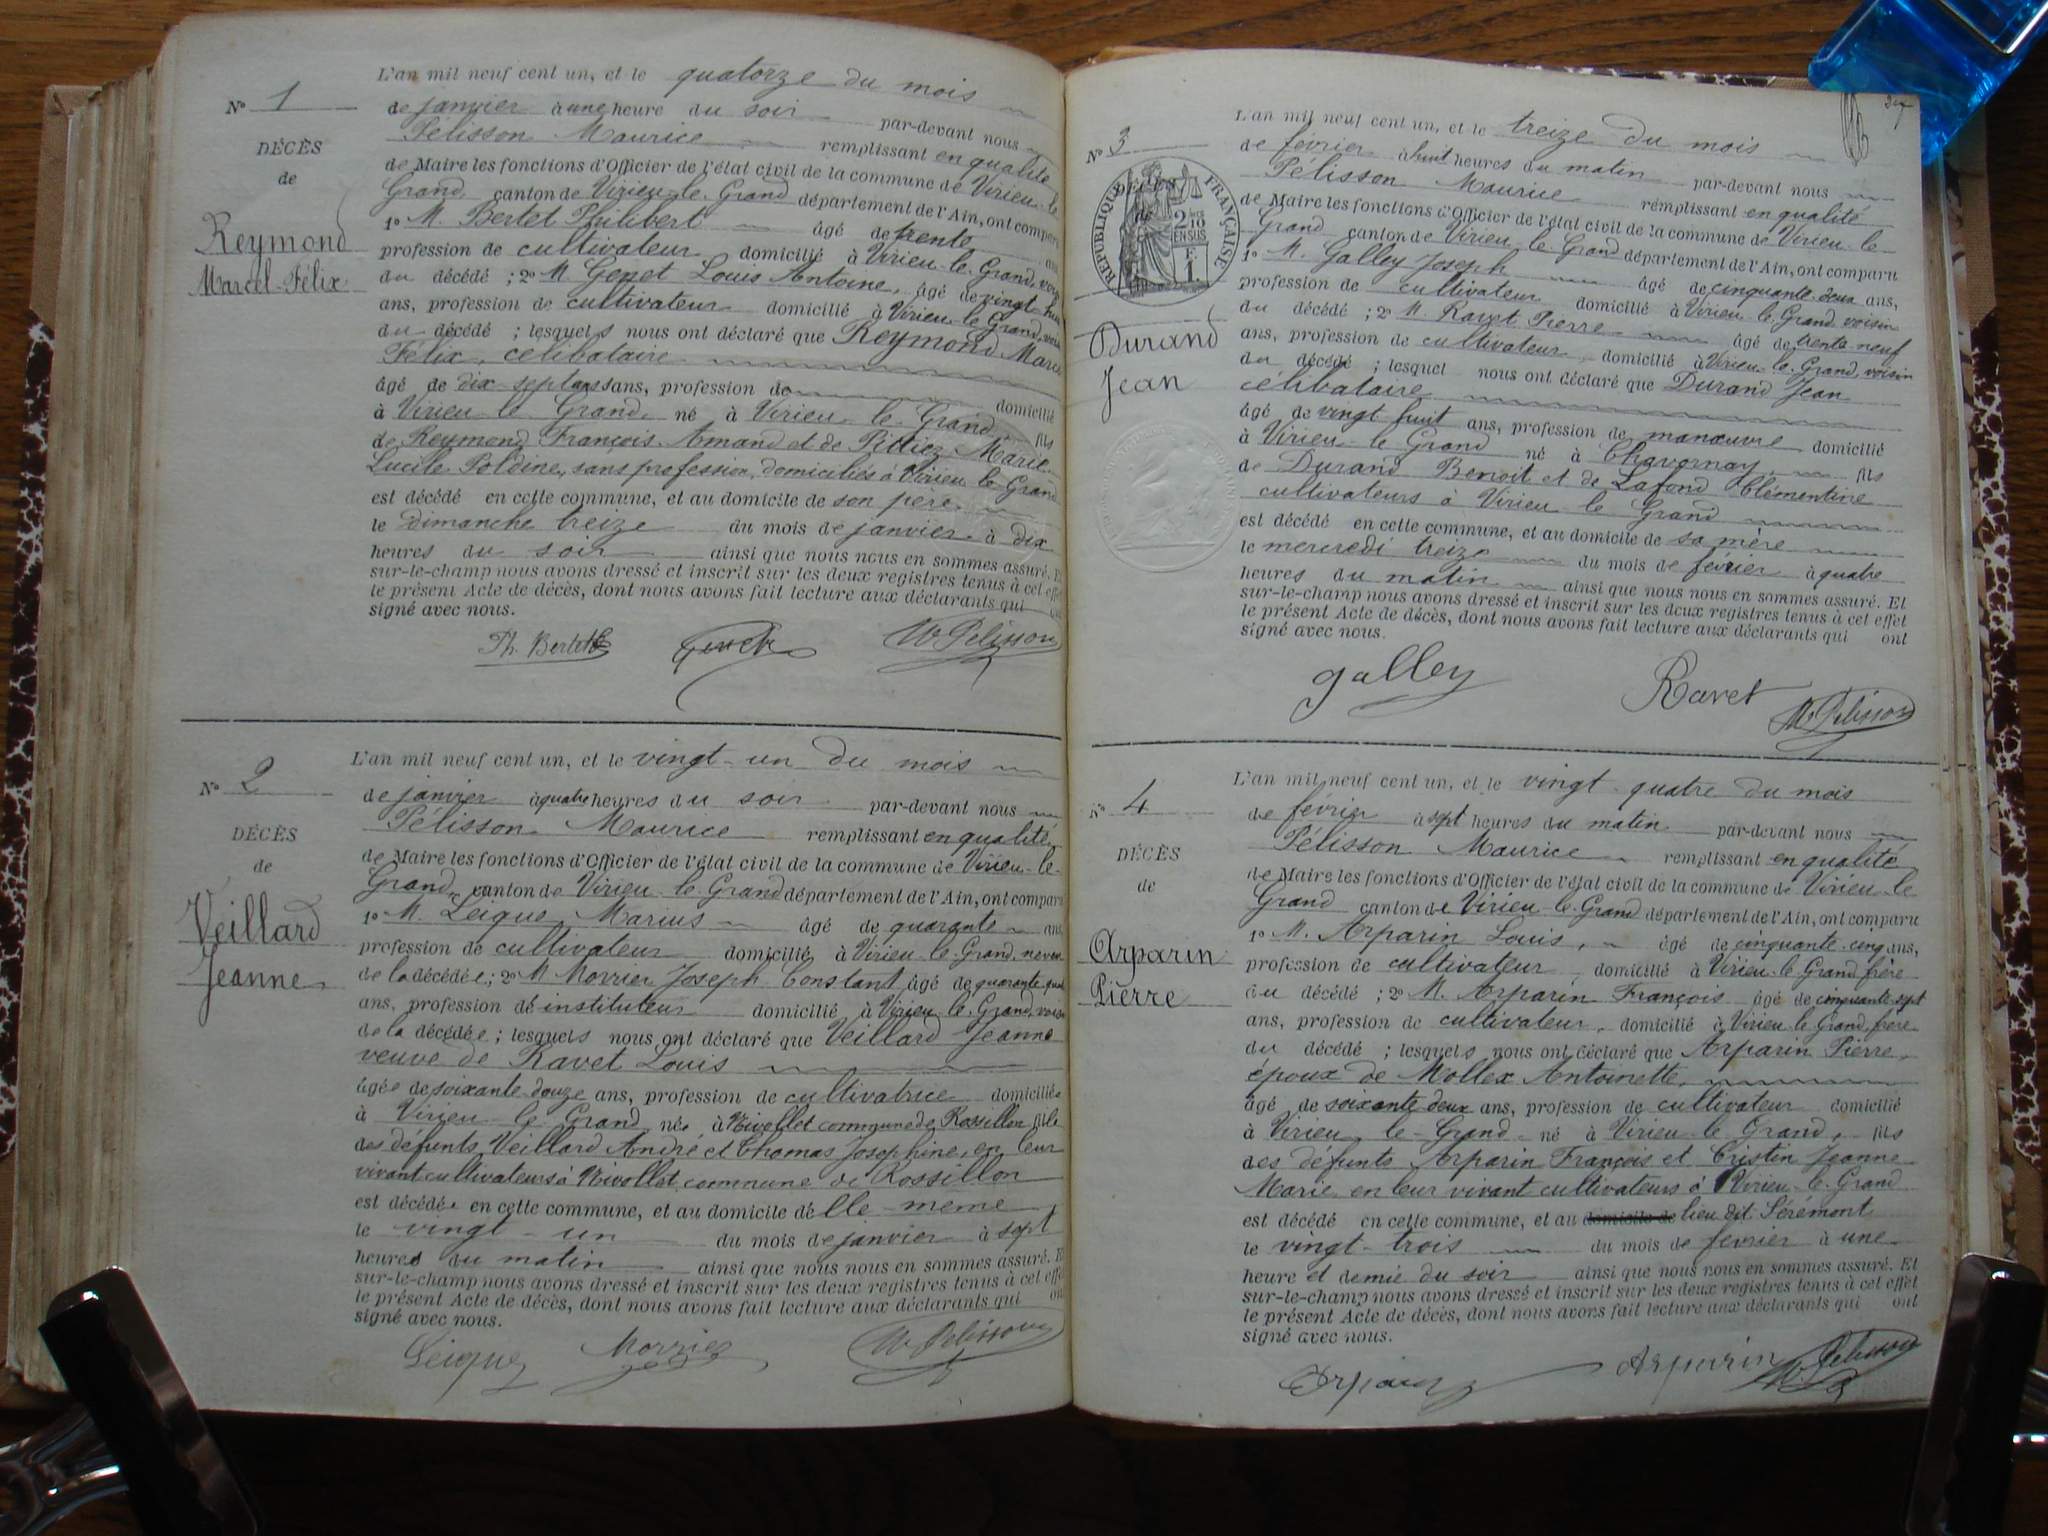 L'an mil neuf cent un, et le quatorze du mois
N° 1
de janvier à une heure du soir par-devant nous
DÉCÈS
de
Reymond
Marcel-Félix
Pélisson Maurice remplissant en qualité
de Maire les fonctions d'Officier de l'état civil de la commune de Virieu-le
Grand canton de Virieu-le-Grand département de l'Ain, ont comparu
1° M. Bertet Philibert âgé de trente ans
profession de cultivateur domicilié à Virieu-le-Grand, voisin
du décédé ; 2° M. Genet Louis Antoine, âgé de vingt-huit
ans, profession de cultivateur domicilié à Virieu-le-Grand, voisin
du décédé ; lesquels nous ont déclaré que Reymond Marcel
Félix, célibataire
âgé de dix-sept ans, profession de domicilié
à Virieu-le-Grand, né à Virieu-le-Grand fils
de Reymond François-Amand et de Pittiez Marie
Lucile Poldine, sans profession, domiciliés à Virieu-le-Grand
est décédé en cette commune, et au domicile de son père
le dimanche treize du mois de janvier à dix
heures du soir ainsi que nous nous en sommes assuré. Et
sur-le-champ nous avons dressé et inscrit sur les deux registres tenus à cet effet
le présent Acte de décès, dont nous avons fait lecture aux déclarants qui ont
signé avec nous.
Ph. Bertet Genet M. Pélisson
L'an mil neuf cent un, et le vingt-un du mois
N° 2
de janvier à quatre heures du soir par-devant nous
DÉCÈS
de
Veillard
Jeanne
Pélisson Maurice remplissant en qualité
de Maire les fonctions d'Officier de l'état civil de la commune de Virieu-le-
Grand, canton de Virieu-le-Grand département de l'Ain, ont comparu
1° M. Leique Marius âgé de quarante ans
profession de cultivateur domicilié à Virieu-le-Grand, neveu
de la décédée ; 2° M Morrier Joseph Constant, âgé de quarante-quatre
ans, profession de instituteur domicilié à Virieu-le-Grand, voisin
de la décédée ; lesquels nous ont déclaré que Veillard Jeanne
veuve de Ravet Louis
âgée de soixante-douze ans, profession de cultivatrice domiciliée
à Virieu-le-Grand née à Nivollet commune de Rossillon fille
des défunts Veillard André et Thomas Josephine, en leur
vivant cultivateurs à Nivollet commune de Rossillon
est décédée en cette commune, et au domicile d'elle-même
le vingt-un du mois de janvier à sept
heures du matin ainsi que nous nous en sommes assuré. Et
sur-le-champ nous avons dressé et inscrit sur les deux registres tenus à cet effet
le présent Acte de décès, dont nous avons fait lecture aux déclarants qui ont
signé avec nous.
Leique Morrier M. Pélisson
L'an mil neuf cent un, et le treize du mois
N° 3
de février à huit heures du matin par-devant nous
RÉPUBLIQUE FRANÇAISE
2/10 EN SUS
F. 1
Durand
Jean
Pélisson Maurice remplissant en qualité
de Maire les fonctions d'Officier de l'état civil de la commune de Virieu-le-
Grand canton de Virieu-le-Grand département de l'Ain, ont comparu
1° M. Galley Joseph âgé de cinquante-deux ans,
profession de cultivateur domicilié à Virieu-le-Grand, voisin
du décédé ; 2° M. Ravet Pierre âgé de trente-neuf
ans, profession de cultivateur, domicilié à Virieu-le-Grand, voisin
du décédé ; lesquel nous ont déclaré que Durand Jean
célibataire
âgé de vingt-huit ans, profession de manœuvre domicilié
à Virieu-le-Grand né à Chavornay, fils
de Durand Benoit et de Lafond Clémentine
cultivateurs à Virieu-le-Grand
est décédé en cette commune, et au domicile de sa mère
le mercredi treize du mois de février à quatre
heures du matin ainsi que nous nous en sommes assuré. Et
sur-le-champ nous avons dressé et inscrit sur les deux registres tenus à cet effet
le présent Acte de décès, dont nous avons fait lecture aux déclarants qui ont
signé avec nous.
galley Ravet M. Pélisson
L'an mil neuf cent un, et le vingt-quatre du mois
N° 4
de février à sept heures du matin par-devant nous
DÉCÈS
de
Arparin
Pierre
Pélisson Maurice remplissant en qualité
de Maire les fonctions d'Officier de l'état civil de la commune de Virieu-le
Grand canton de Virieu-le-Grand département de l'Ain, ont comparu
1° M. Arparin Louis, âgé de cinquante-cinq ans,
profession de cultivateur, domicilié à Virieu-le-Grand, frère
du décédé ; 2° M. Arparin François âgé de cinquante-sept
ans, profession de cultivateur, domicilié à Virieu-le-Grand, frère
du décédé ; lesquels nous ont déclaré que Arparin Pierre,
époux de Mollex Antoinette,
âgé de soixante-deux ans, profession de cultivateur domicilié
à Virieu-le-Grand né à Virieu-le-Grand, fils
des défunts Arparin François et Cristin Jeanne
Marie, en leur vivant cultivateurs à Virieu-le-Grand
est décédé en cette commune, et au domicile de lieu dit Sérémont
le vingt-trois du mois de février à une
heure et demie du soir ainsi que nous nous en sommes assuré. Et
sur-le-champ nous avons dressé et inscrit sur les deux registres tenus à cet effet
le présent Acte de décès, dont nous avons fait lecture aux déclarants qui ont
signé avec nous.
Arparin Arparin M. Pélisson